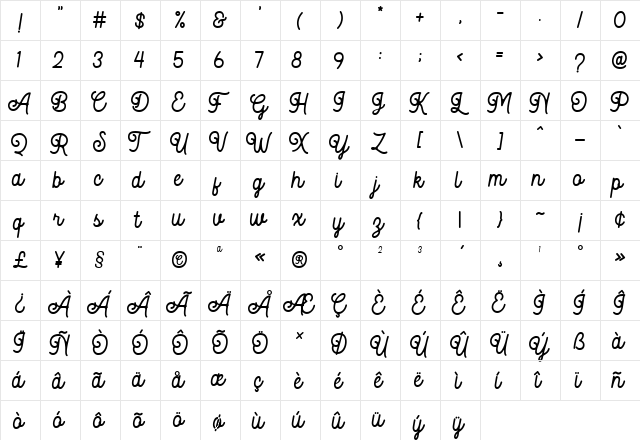 ! " # $ % & ' ( ) * + , - . / 0
1 2 3 4 5 6 7 8 9 : ; < = > ? @
A B C D E F G H I J K L M N O P
Q R S T U V W X Y Z [ \ ] ^ _ `
a b c d e f g h i j k l m n o p
q r s t u v w x y z { | } ~ ¡ ¢
£ ¥ § ¨ © ª « ® ° ² ³ ´ ¸ ¹ º »
¿ À Á Â Ã Ä Å Æ Ç È É Ê Ë Ì Í Î
Ï Ñ Ò Ó Ô Õ Ö × Ø Ù Ú Û Ü Ý ß à
á â ã ä å æ ç è é ê ë ì í î ï ñ
ò ó ô õ ö ø ù ú û ü ý ÿ